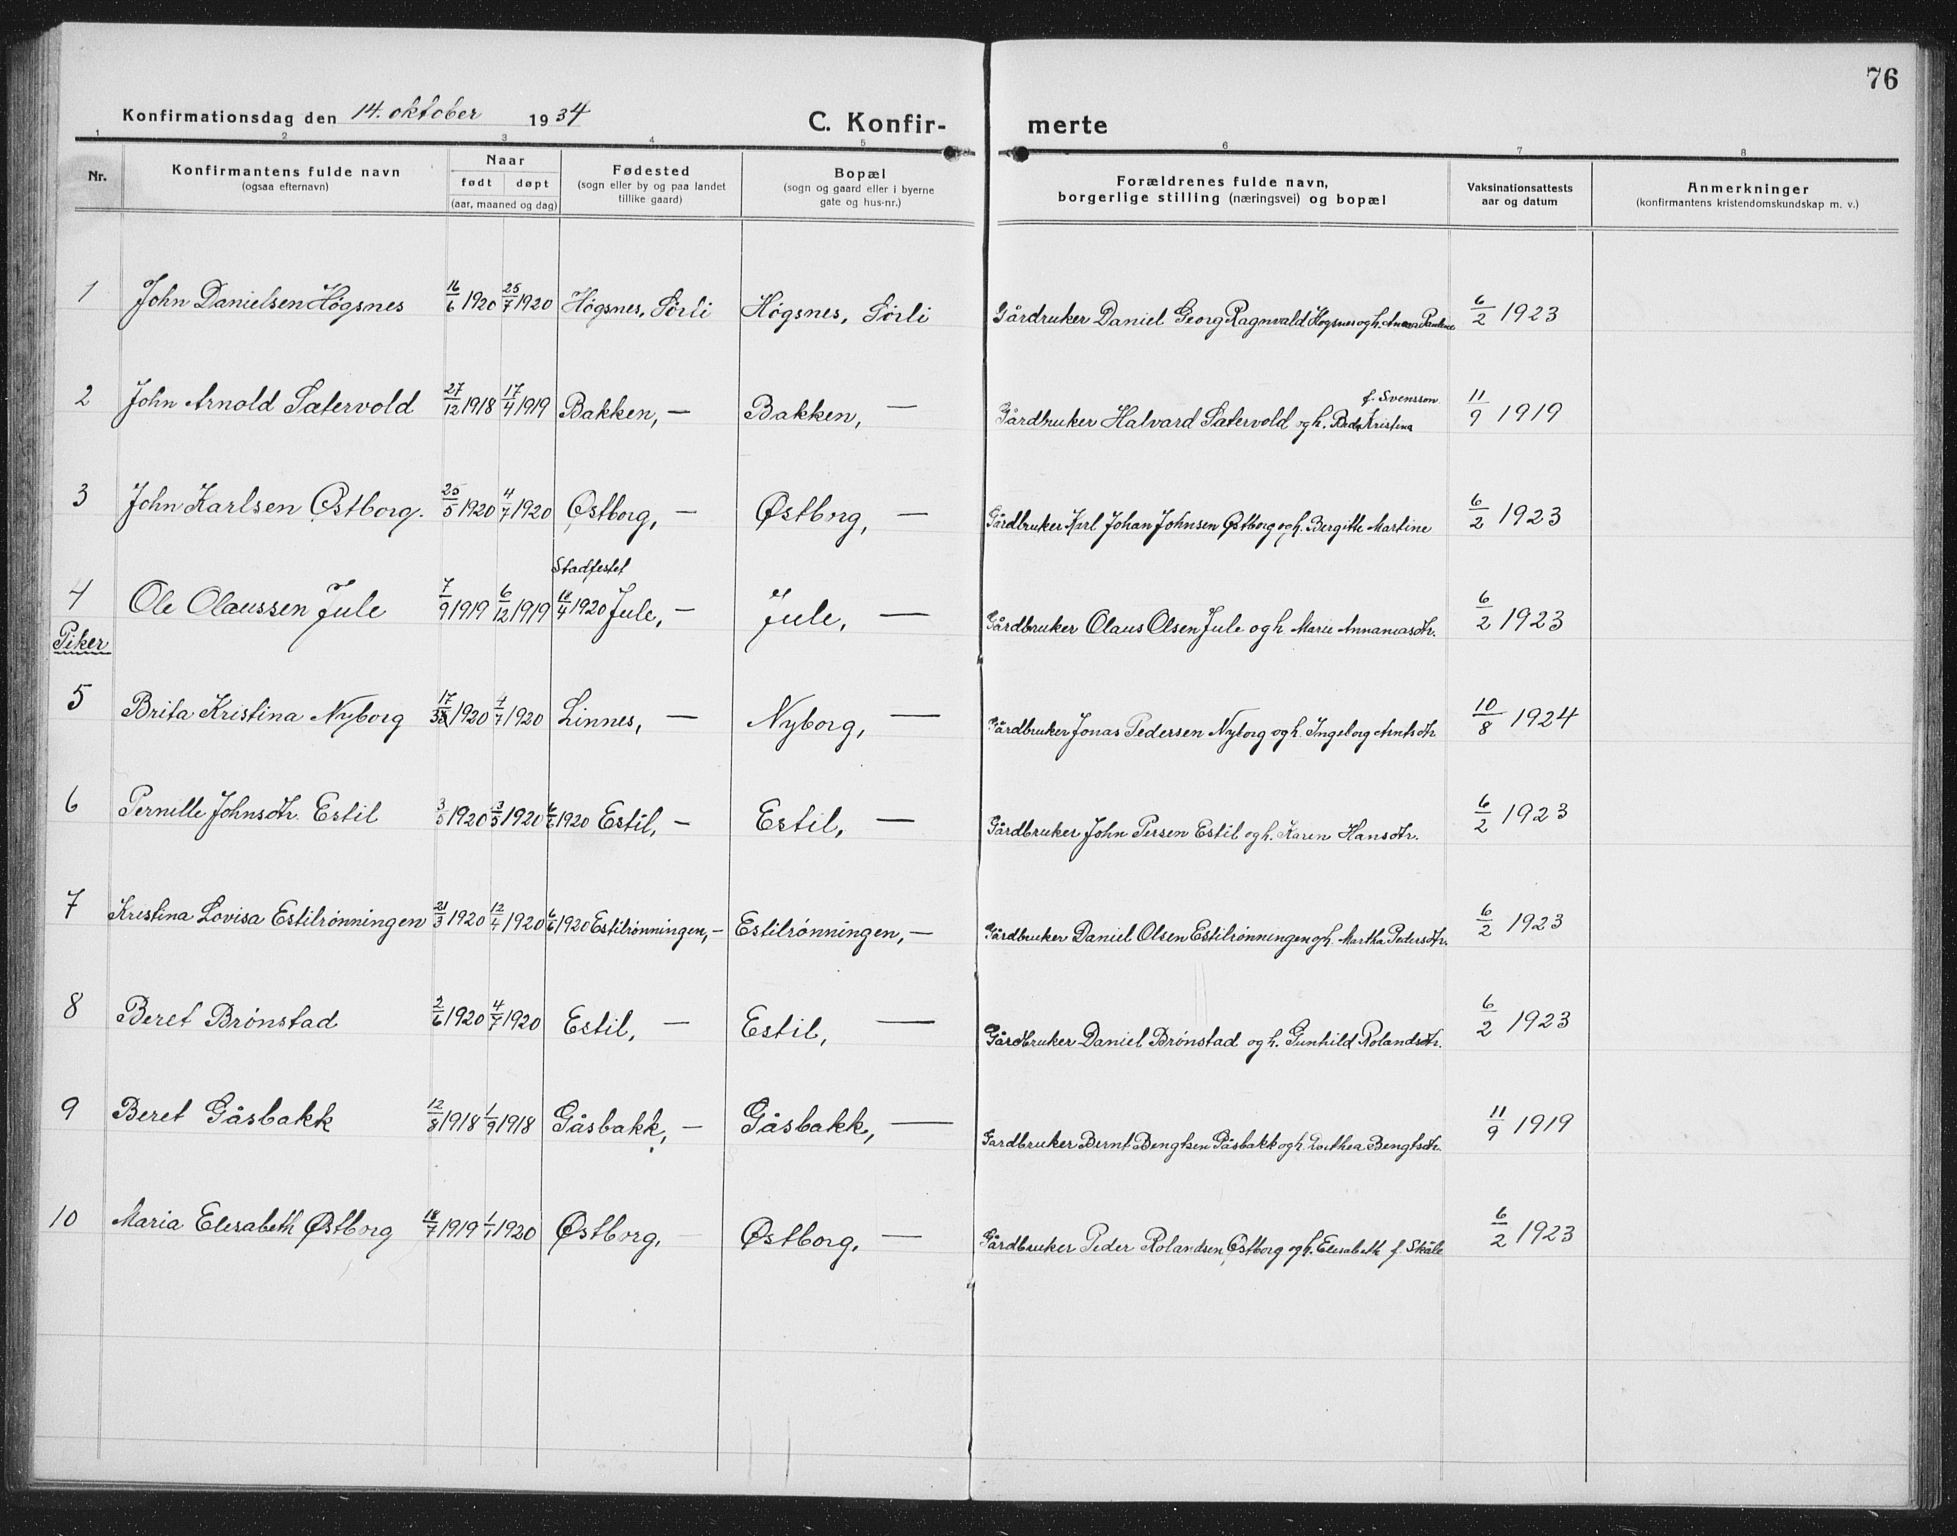 76
Konfirmationsdag den 14. oktober 1934
C. Konfir- merte
1 2 3 4 5 6 7 8
Nr. Konfirmantens fulde navn (ogsaa efternavn) Naar født døpt (aar, maaned og dag) Fødested (sogn eller by og paa landet tillike gaard) Bopæl (sogn og gaard eller i byerne gate og hus-nr.) Forældrenes fulde navn, borgerlige stilling (næringsvei) og bopæl Vaksinationsattests aar og datum Anmerkninger (konfirmantens kristendomskundskap m. v.)
1 John Danielsen Høgsnes 16/6 1920 25/7 1920 Høgsnes, Sørli Høgsnes, Sørli Gårdruker Daniel Georg Ragnvald Høgsnes og h. Anna Pauline 6/2 1923
2 John Arnold Sætervold 27/12 1918 17/4 1919 Bakken, — Bakken, — Gårdbruker Halvard Sætervold og h. Beda Kristina f. Svensson 11/9 1919
3 John Karlsen Østborg. 25/5 1920 4/7 1920 Østborg, — Østborg, — Gårdbruker Karl Johan Johnsen Østborg og h. Bergitte Martine 6/2 1923
4 Ole Olaussen Jule 7/9 1919 6/12 1919 Stadfestet 11/4 1920 Jule, — Jule, — Gårdbruker Olaus Olsen Jule og h Marie Annaniasdtr. 6/2 1923
Piker
5 Brita Kristina Nyborg 1920 4/7 1920 Linnes, — Nyborg, — Gårdbruker Jonas Pedersen Nyborg og h. Ingeborg Arntsdtr. 10/8 1924
6 Pernille Johnsdtr. Estil 1920 1920 1920 Estil, — Estil, — Gårdbruker John Persen Estil og h. Karen Hansdtr. 6/2 1923
7 Kristina Lovisa Estilrønningen 21/3 1920 12/4 1920 6/6 1920 Estilrønningen, — Estilrønningen, — Gårdbruker Daniel Olsen Estilrønningen og h. Martha Pedersdtr. 6/2 1923
8 Beret Brønstad 2/6 1920 4/7 1920 Estil, — Estil, — Gårdbruker Daniel Brønstad og h. Gunhild Rolandsdtr. 6/2 1923
9 Beret Gåsbakk 12/8 1918 1/9 1918 Gåsbakk, — Gåsbakk, — Gardbruker Bernt Bengtsen Gåsbakk og h. Bengtsdtr. 11/9 1919
10 Maria Elisabeth Østborg 18/7 1919 1/1 1920 Østborg, — Østborg, — Gårdbruker Peder Rolandsen Østborg og h. Elisabeth f. Skåle 6/2 1923